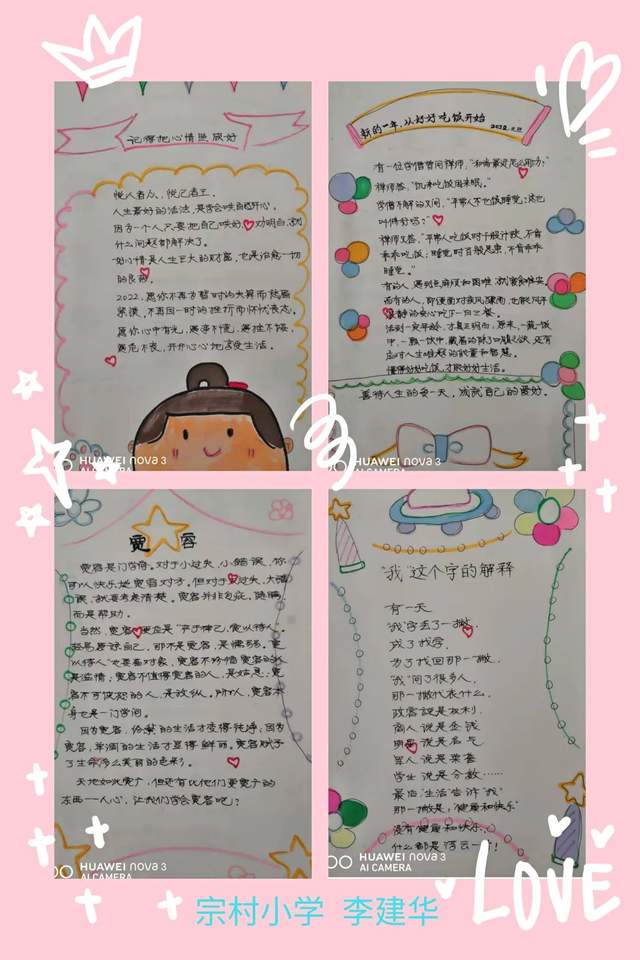 记得把心情照顾好
悦人者众，悦己者王。
人生最好的活法，是学会哄自己开心。
因为一个人只要把自己哄好
什么问题都解决了。
好心情是人生巨大的财富，也是治愈一切
的良药。
2022，愿你不再为暂时的失算而扰乱
不再因一时的挫折而怀忧丧志。
愿你心中有光，遇事不慌，遇挫不馁，
遇危不丧，开开心心地享受生活。
HUAWEI nova 3
AI CAMERA
新的一年，从好好吃饭开始
2022.元旦
有一位学僧曾问禅师，“和尚最近怎么用功？”
禅师答，“饥来吃饭困来眠。”
学僧不解的又问，“平常人不也饭睡觉？这也
叫修行吗？”
禅师又答，“平常人吃饭时千般计较，不肯
乖乖吃饭；睡觉时百般思索，不肯乖乖
睡觉。”
有的人，遇到点麻烦和困难，就寝食难安。
而有的人，即使面对疾风骤雨，也能风平
浪静的安心吃下一日三餐。
活到一定年龄，才真正明白，原来，一蔬一饭
中，一瓢一饮中，藏着的除了口腹之欲，还有
应对人生难题的能量和智慧。
懂得好好吃饭，才能好好生活。
善待人生的每一天，成就自己的美好。
HUAWEI nova 3
AI CAMERA
宽容
宽容是门学问。对于小过失，小错误，你
可以快乐地宽容对方。但对于大过失，大错
误，就要考虑清楚。宽容并非包庇、隐瞒，
而是帮助。
当然，宽容更应是“严于律己，宽以待人。”
轻易原谅自己，那不是宽容，是懦弱。“宽
以待人”也要看对象，宽容不珍惜宽容的人
是滥情；宽容不值得宽容的人，是姑息；宽
容不可饶恕的人，是放纵。所以，宽容本
身也是一门学问。
因为宽容，纷繁的生活才变得纯净；因为
宽容，单调的生活才显得鲜丽。宽容赋予
了生命多么美丽的色彩。
天地如此宽广，但还有比他们更宽广的
东西——人心，让我们学会宽容吧？
HUAWEI nova 3
AI CAMERA
“我”这个字的解释
有一天
“我”字丢了一撇，
成了找字，
为了找回那一撇，
“我”问了很多人，
那一撇代表什么，
政客说是权利，
商人说是金钱
明星说是名气
军人说是荣誉
学生说是分数……
最后“生活告诉“我”
那一撇是，“健康和快乐”
没有健康和快乐，
什么都是浮云一片！
HUAWEI nova 3
AI CAMERA
LOVE
宗村小学 李建华